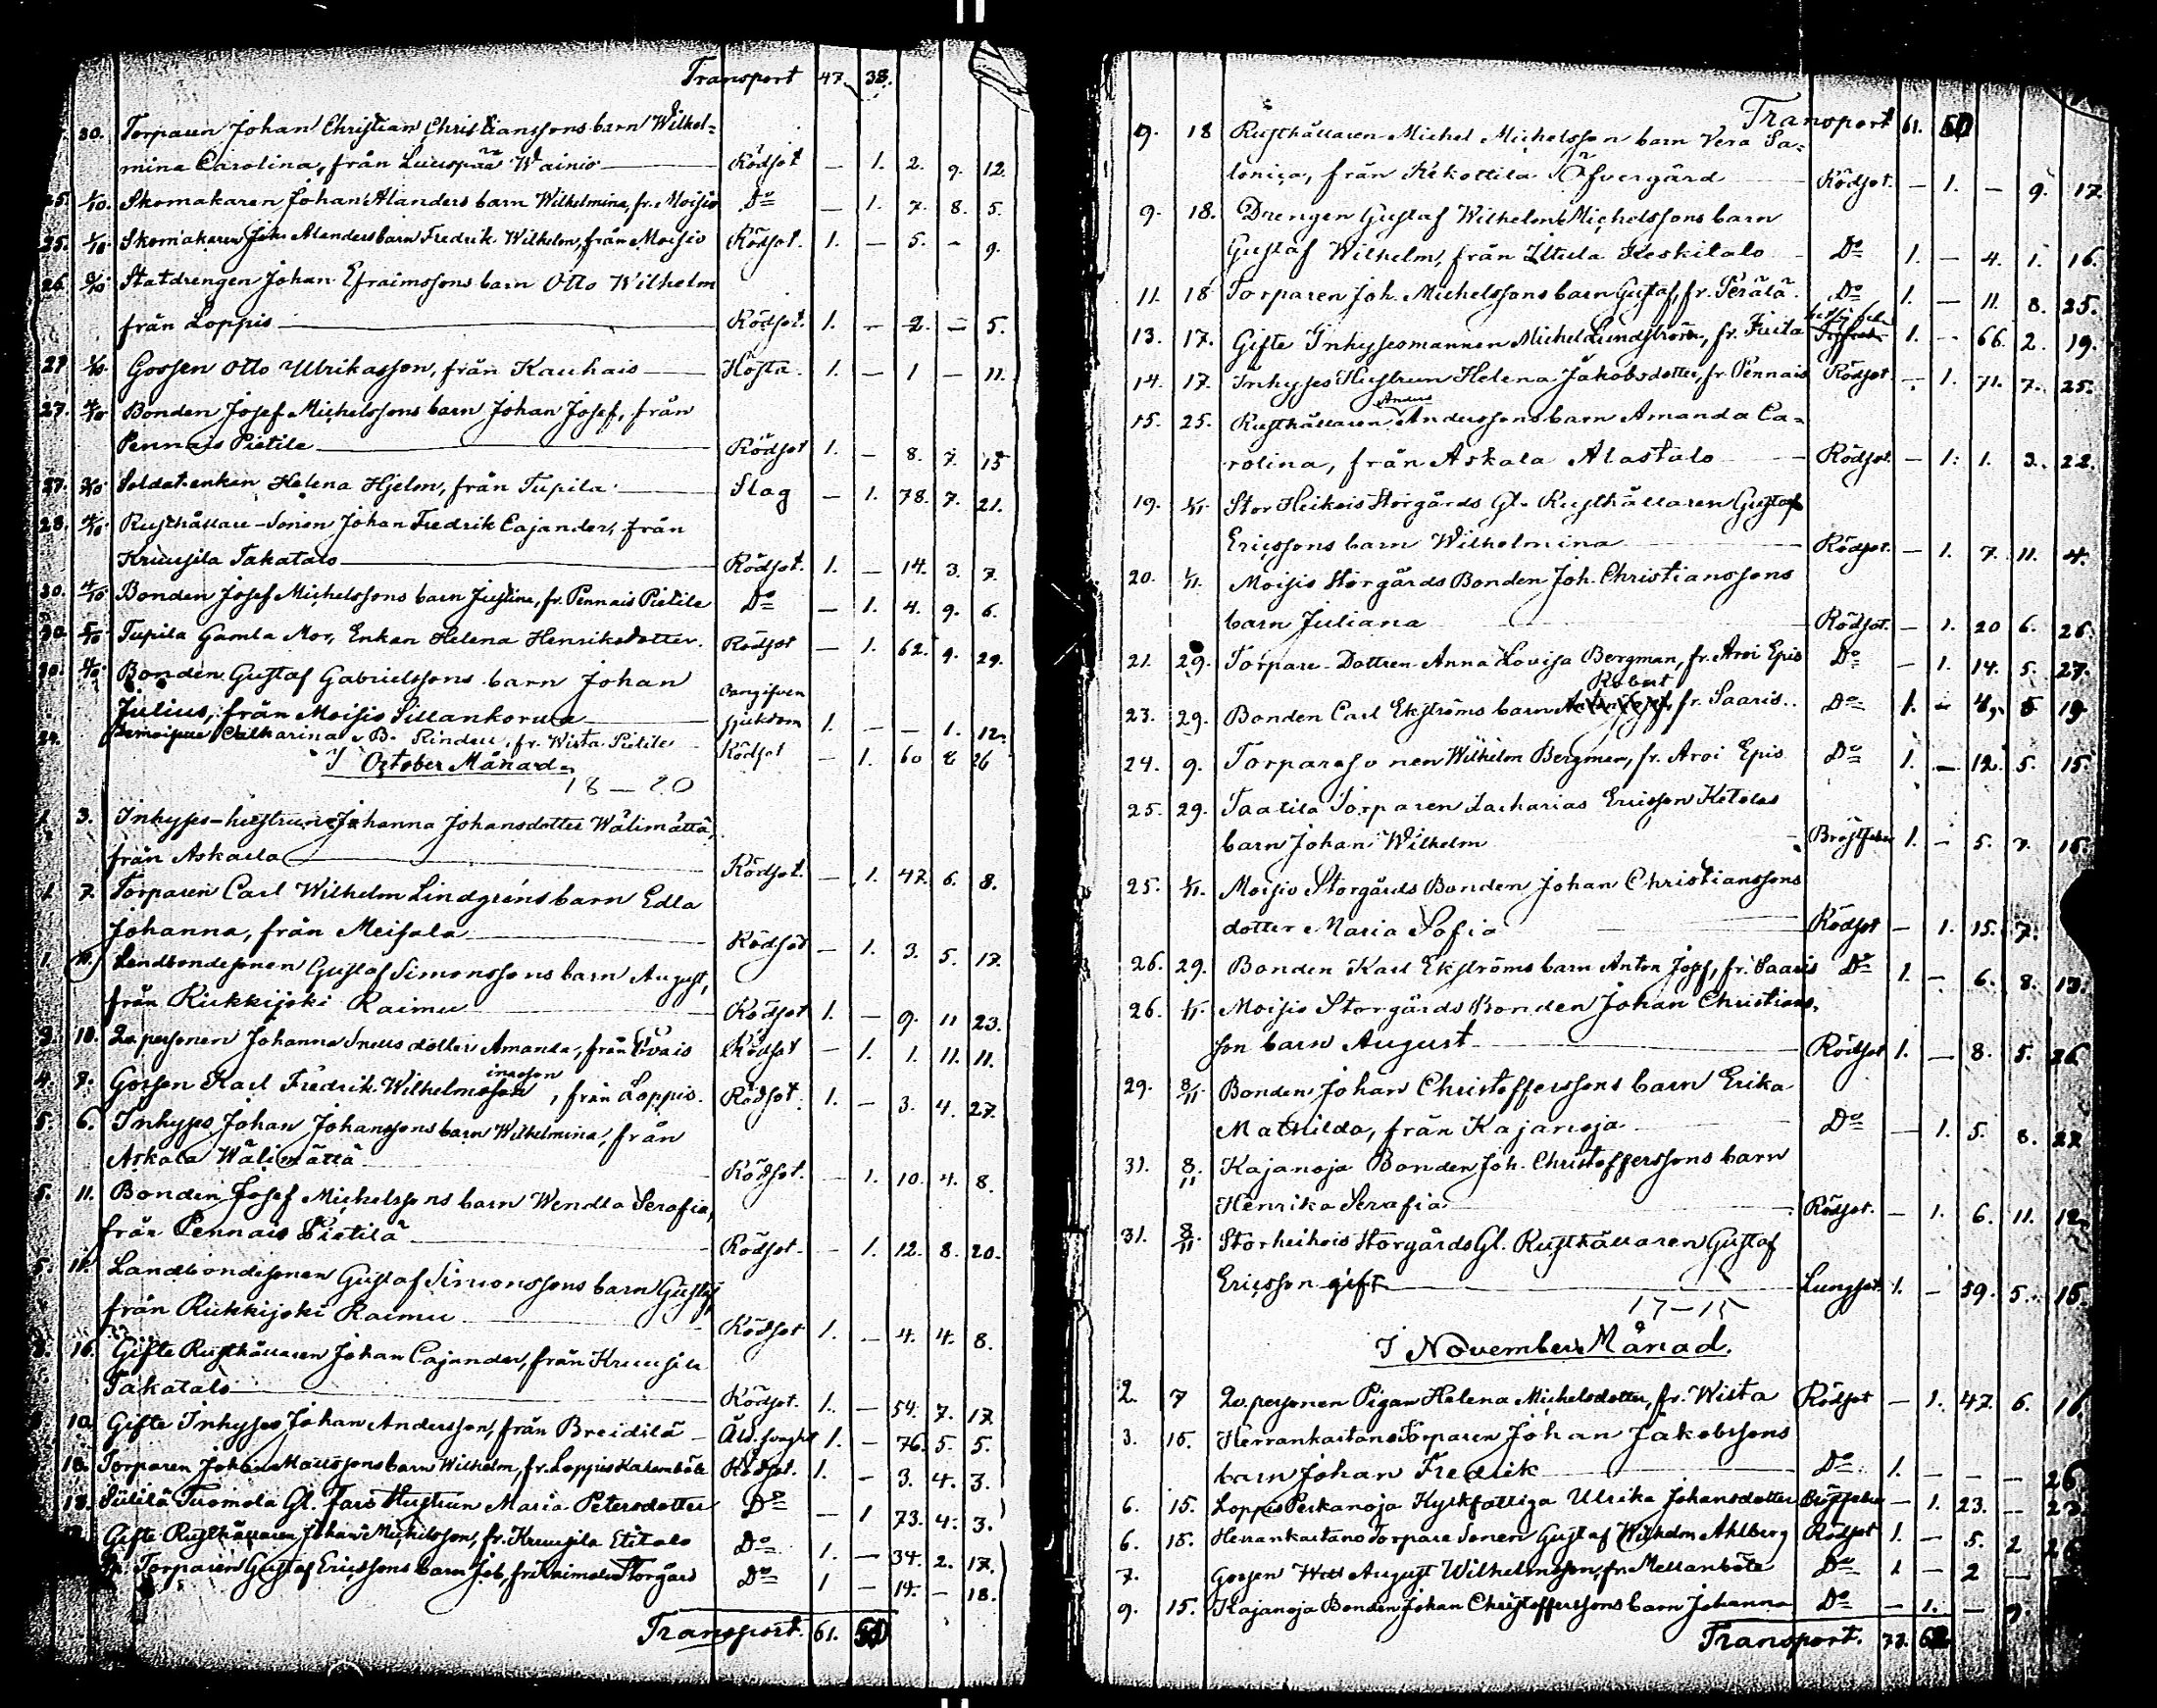 Transport 47. 38.
30. Torparen Johan Christian Christianssons barn Wilhel=
mina Carolina, från Wainio Rödsot — 1. 2. 9. 12.
25. 1/10. Skomakaren Johan Alanders barn Wilhelmina, fr. Moisio Do — 1. 7. 8. 5.
25. 1/10. Skomakaren Joh. Alanders barn Fredrik Wilhelm, från Moisio Rödsot. 1. — 5. – 9.
26. Statdrengen Johan Efraimssons barn Otto Wilhelm
från Loppis Rödsot. 1. — 2. — 5.
27 Gossen Otto Ulrikasson, från Kauhais Hosta. 1. — 1 — 11.
27. 4/10 Bonden Josef Michelssons barn Johan Josef, från
Pennais Pietile Rödsot 1. — 8. 7. 15
27. Soldat.enkan Helena Hjelm, från Tupila Slag — 1. 78. 7. 21.
28. 4/10 Rusthållare-Sonen Johan Fredrik Cajander, från
Kruusila Takatalo Rödsot. 1. — 14. 3. 7.
30. 4/10 Bonden Josef Michelssons barn Justina, fr. Pennais Pietile Do — 1. 4. 9. 6.
30. 5/10 Tupila Gamla Mor, Enkan Helena Henriksdotter. Rödsot — 1. 62. 9. 29.
30. 4/10 Bonden Gustaf Gabrielssons barn Johan
Julius, från Moisio Sillankorva Oangifven sjukdom 1. — — 1. 12.
24. Catharina B. fr. Wista Pietile Rödsot — 1. 60 8 26
I October Månad.
18 — 20
1. 3. Inhyses-hustrun Johanna Johansdotter Wälimättä,
från Askala Rödsot. — 1. 47. 6. 8.
1. 7. Torparen Carl Wilhelm Lindgréns barn Edla
Johanna, från Meisala Rödsot — 1. 3. 5. 17.
1. 11. Landbondesonen Gustaf Simonssons barn August,
från Kukkijoki Raimu Rödsot 1. — 9. 11 23.
3. 10. Qv.personen Johanna dotter Amanda, från Rödsot — 1. 1. 11. 11.
4. 7. Gossen Karl Fredrik Wilhelmsson, från Loppis. Rödsot. 1. — 3. 4. 27.
5. 6. Inhyses Johan Johanssons barn Wilhelmina, från
Askala Wälimättä Rödsot. — 1. 10. 4. 8.
5. 11. Bonden Josef Michelssons barn Wendla Serafia,
från Pennais Pietilä Rödsot. — 1. 12. 8. 20.
5. 11. Landbondesonen Gustaf Simonssons barn Gustaf,
från Kukkijoki Raimu Rödsot 1. — 4. 4. 8.
16. Gifte Rusthållaren Johan Cajander, från Kruusila
Takatalo Rödsot. 1. — 54. 7. 17.
10. Gifte Inhyses Johan Andersson, från Breidilä Åld.svaghet 1. — 76. 5. 5.
18. Torparen Johan Mattssons barn Wilhelm, fr. Loppis Rödsot. 1. — 3. 4. 3.
18. Sülilä Tuomola Gl. Fars Hustrun Maria Petersdotter Do — 1 73. 4. 3.
Gifte Rusthållaren Johan Michelsson, fr. Kruusila Etitalo Do 1. — 34. 2. 17.
Torparen Gustaf Ericssons barn Job, fr. Storgård Do 1 — 14. — 18.
Transport. 61. 50
Transport 61. 50
9. 18 Rusthållaren Michel Michelsson barn Vera Sa=
lonica, från Kekottila Öfvergård Rödsot. — 1. — 9. 17.
9. 18. Drengen Gustaf Wilhelm Michelssons barn
Gustaf Wilhelm, från Ittula Keskitalo Do 1. — 4. 1. 16.
11. 18 Torparen Joh. Michelssons barn Gustaf, fr. Perälä. Do 1. — 11. 8. 25.
13. 17. Gifte Inhysesmannen Michel Lundström, fr. Juila 1. — 66. 2. 19.
14. 17. Inhyses Hustrun Helena Jakobsdotter, fr Pennais Rödsot — 1. 71. 7. 25.
15. 25. Rusthållaren Anders Anderssons barn Amanda Ca=
rolina, från Askala Alastalo Rödsot. — 1. 1. 3. 22.
19. 1/11. Stor Heikois Storgårds Gl. Rusthållaren Gustaf
Ericssons barn Wilhelmina Rödsot. — 1. 7. 11. 4.
20. 1/11. Moisio Storgårds Bonden Joh. Christianssons
barn Juliana Rödsot. — 1. 20 6. 26.
21. 29. Torpare-Dottren Anna Lovisa Bergman, fr. Aroi Epis Do — 1. 14. 5. 27.
23. 29. Bonden Carl Ekströms barn Robert fr. Saaris.. Do 1. — 4. 5 19
24. 9. Torparesonen Wilhelm Bergman, fr. Aroi Epis Do 1. — 12. 5. 15.
25. 29. Taatila Torparen Zacharias Ericsson Ketolas
barn Johan Wilhelm Bröstfeber 1. — 5. 7. 15.
25. 1/11. Moisio Storgårds Bonden Johan Christianssons
dotter Maria Sofia Rödsot — 1. 15. 7.
26. 29. Bonden Karl Ekströms barn Anton Josef, fr. Saaris Do 1. — 6. 8. 13.
26. 1/11. Moisio Storgårds Bonden Johan Christians=
son barn August Rödsot 1. — 8. 5. 26
29. 8/11 Bonden Johan Christofferssons barn Erika
Mathilda, från Kajanoja Do — 1. 5. 8. 22
31. 8/11 Kajanoja Bonden Joh. Christofferssons barn
Henrika Serafia Rödsot. — 1. 6. 11. 12.
31. 8/11 Storheikois Storgårds Gl. Rusthållaren Gustaf
Ericsson gift Lungsot. 1. — 59. 5. 15.
17 — 15
I November Månad.
2. 7 Qv.personen Pigan Helena Michelsdotter, fr. Wista Rödsot — 1. 47. 6. 16.
3. 15. Herrankartano Torparen Johan Jakobssons
barn Johan Fredrik Do 1. — — — 26
6. 15. Loppis Perkanoja Kyrkfattiga Ulrika Johansdotter Bröstfeber — 1. 23. — 23.
6. 15. Herrankartano Torpare Sonen Gustaf Wilhelm Ahlberg Rödsot 1. — 5. 2 26
7. Gossen August Wilhelmsson, fr. Mellanböle Do 1 — 2 —
9. 15. Kajanoja Bonden Johan Christofferssons barn Johanna Do — 1. — 9.
Transport. 72. 62